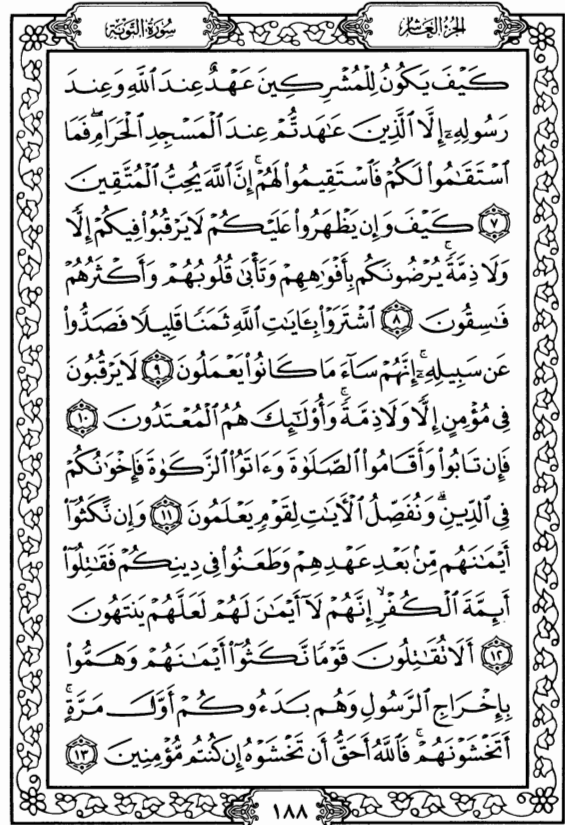 سُورَةُ التَّوْبَةِ الجُزْءُ العَاشِرُ
كَيْفَ يَكُونُ لِلْمُشْرِكِينَ عَهْدٌ عِندَ ٱللَّهِ وَعِندَ
رَسُولِهِۦٓ إِلَّا ٱلَّذِينَ عَٰهَدتُّمْ عِندَ ٱلْمَسْجِدِ ٱلْحَرَامِ ۖ فَمَا
ٱسْتَقَٰمُوا۟ لَكُمْ فَٱسْتَقِيمُوا۟ لَهُمْ ۚ إِنَّ ٱللَّهَ يُحِبُّ ٱلْمُتَّقِينَ
٧ كَيْفَ وَإِن يَظْهَرُوا۟ عَلَيْكُمْ لَا يَرْقُبُوا۟ فِيكُمْ إِلًّا
وَلَا ذِمَّةً ۚ يُرْضُونَكُم بِأَفْوَٰهِهِمْ وَتَأْبَىٰ قُلُوبُهُمْ وَأَكْثَرُهُمْ
فَٰسِقُونَ ٨ ٱشْتَرَوْا۟ بِـَٔايَٰتِ ٱللَّهِ ثَمَنًا قَلِيلًا فَصَدُّوا۟
عَن سَبِيلِهِۦٓ ۚ إِنَّهُمْ سَآءَ مَا كَانُوا۟ يَعْمَلُونَ ٩ لَا يَرْقُبُونَ
فِى مُؤْمِنٍ إِلًّا وَلَا ذِمَّةً ۚ وَأُو۟لَٰٓئِكَ هُمُ ٱلْمُعْتَدُونَ ١٠
فَإِن تَابُوا۟ وَأَقَامُوا۟ ٱلصَّلَوٰةَ وَءَاتَوُا۟ ٱلزَّكَوٰةَ فَإِخْوَٰنُكُمْ
فِى ٱلدِّينِ ۗ وَنُفَصِّلُ ٱلْءَايَٰتِ لِقَوْمٍ يَعْلَمُونَ ١١ وَإِن نَّكَثُوٓا۟
أَيْمَٰنَهُم مِّنۢ بَعْدِ عَهْدِهِمْ وَطَعَنُوا۟ فِى دِينِكُمْ فَقَٰتِلُوٓا۟
أَئِمَّةَ ٱلْكُفْرِ ۙ إِنَّهُمْ لَآ أَيْمَٰنَ لَهُمْ لَعَلَّهُمْ يَنتَهُونَ
١٢ أَلَا تُقَٰتِلُونَ قَوْمًا نَّكَثُوٓا۟ أَيْمَٰنَهُمْ وَهَمُّوا۟
بِإِخْرَاجِ ٱلرَّسُولِ وَهُم بَدَءُوكُمْ أَوَّلَ مَرَّةٍ ۚ
أَتَخْشَوْنَهُمْ ۚ فَٱللَّهُ أَحَقُّ أَن تَخْشَوْهُ إِن كُنتُم مُّؤْمِنِينَ ١٣
١٨٨